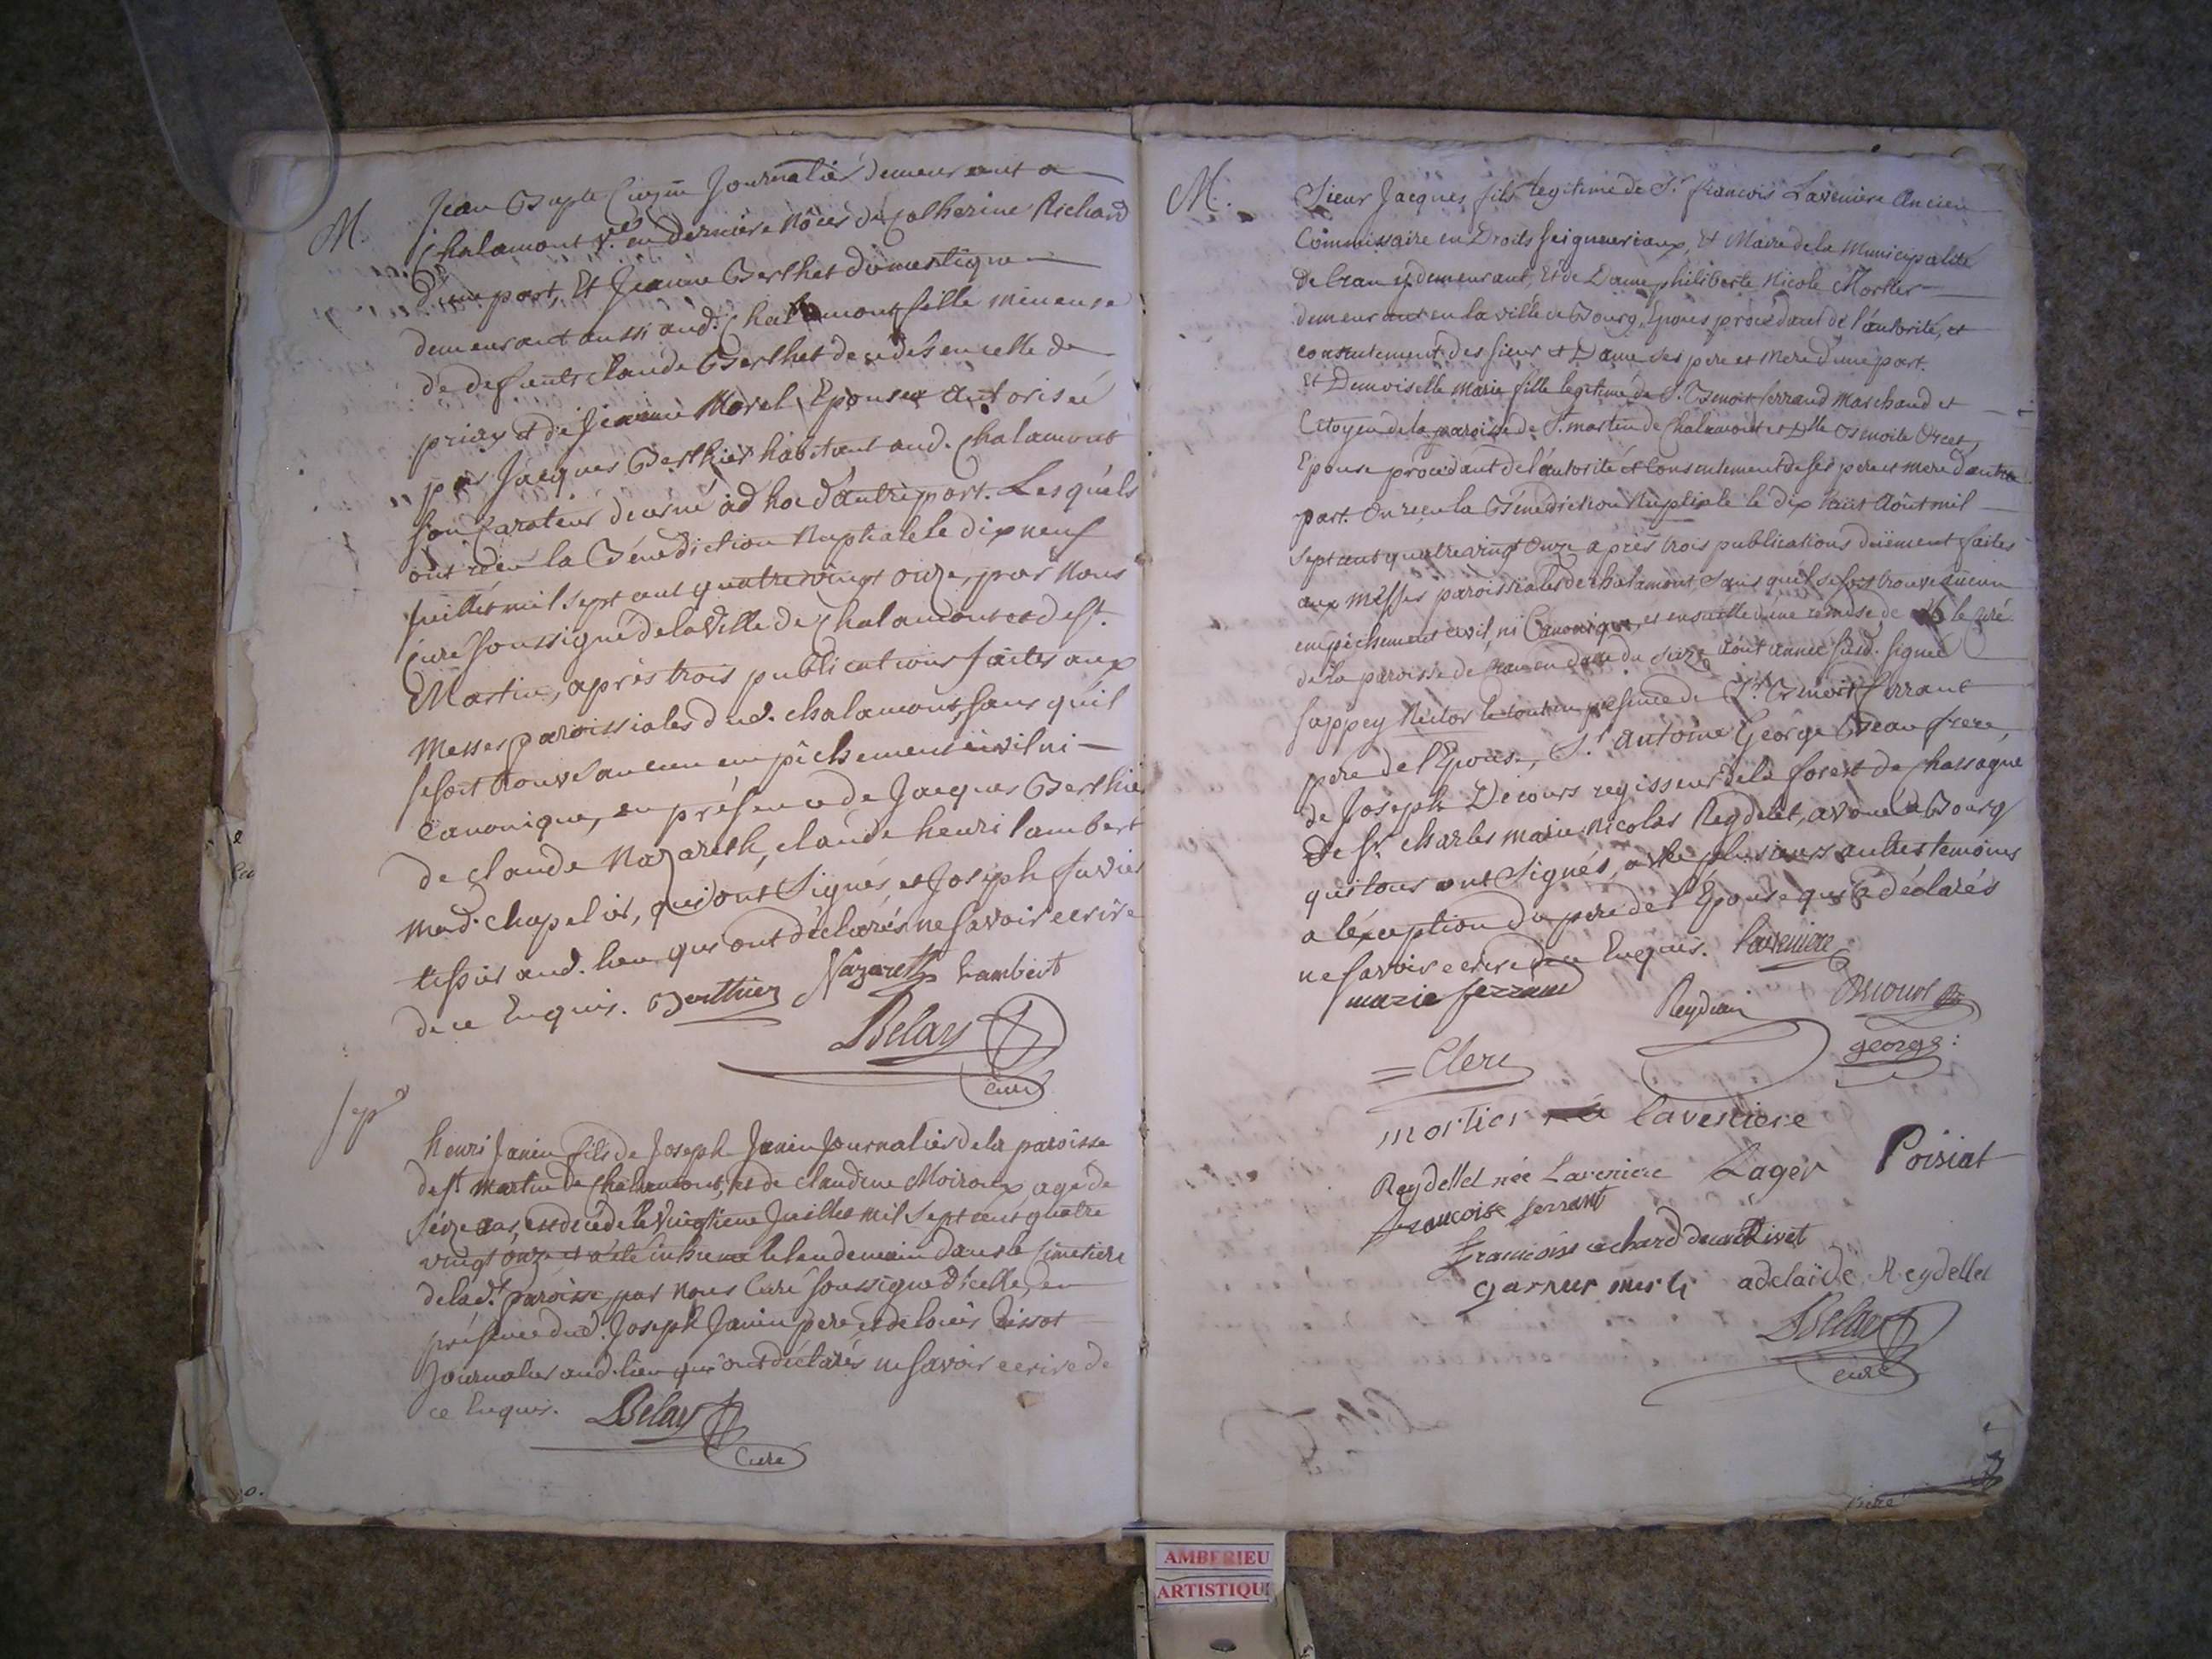 M.
Jean Bapte Journalier demeurant a
Chalamont v.f en derniere nôces de Catherine Richard
d'une part, Et Jeanne Berthet domestique
demeurant aussi aud. Chalamont fille mineure
de defunts claude Berthet de
priay et de Jeanne Morel Epouse autorisée
par Jacques Berthier habitant aud. Chalamont
son Curateur décerné ad hoc d'autre part. Lesquels
ont reçu la Bénédiction Nuptiale le dix neuf
Juillet mil sept cent quatre vingt onze, par Nous
Curé soussigné de la Ville de Chalamont et de st.
Martin, après trois publications faites aux
Messes paroissiales dud. chalamont, sans qu'il
se soit trouvé aucun empêchement civil ni
Canonique, en présence de Jacques Berthier
de claude Nazareth, claude henri lambert
md. chapelier, qui ont Signés et Joseph
tissier aud. lieu qui ont déclarés ne savoir ecrire
de ce Enquis. Berthier Nazareth Lambert
Belay
curé
Sep
henri Janin fils de Joseph Janin Journalier de la paroisse
de st martin de Chalamont, et de claudine Moiroux agé de
séize ans, est décédé le Vingtieme Juillet mil sept cent quatre
vingt onze et a été inhumé le lendemain dans le Cimetiere
de lad.t paroisse par Nous Curé soussigné d'icelle, en
présence dud. Joseph Janin pere, et de louis Tissot
Journalier aud. lieu qui ont déclarés ne savoir ecrire de
ce Enquis. Belay
Curé
M.
Sieur Jacques fils legitime de S.r francois Laveniere Ancien
Commissaire en Droits seigneuriaux, Et Maire de la Municipalité
de Cran y demeurant, Et de Dame philiberte Nicole Mortier
demeurant en la ville de Bourg, Epoux procédant de l'autorité, et
consentement des sieur et Dame ses pere et mere d'une part.
Et Demoiselle Marie fille legitime de S. Benoit ferrand marchand et
Citoyen de la paroisse de S.t martin de Chalamont et Dlle Benoite
Epouse procédant de l'autorité et Consentement de ses pere et mere d'autre
part. On reçu la Bénédiction Nuptiale le dix huit Aôut mil
sept cent quatre vingt Onze après trois publications düement faites
aux Messes paroissiales de chalamont, sans qu'il se soit trouvé aucun
empêchement civil, ni Canonique, et ensuitte d'une remise de le curé
de la paroisse de Cran en date du seize Aôut année susd. signée
sappey Rector le tout en présence de S.r Benoit ferrant
pere de l'Epouse, S.r Antoine George Beau frere,
de Joseph Décours regisseur de la forest de chassagne
de sr. charles marie nicolas Reydelet, avoué à Bourg
qui tous ont signés, avec plusieurs autres temoins
a l'éxception du pere de l'Epouse qui a déclarés
ne savoir ecrire de ce Enquis. laveniere
marie ferrand
= Clerc
george
mortier laveniere
Reydellet née Laveniere Lager Poisiat
francoise ferrant
adelaïde Reydellet
Belay
curé
AMBERIEU
ARTISTIQU